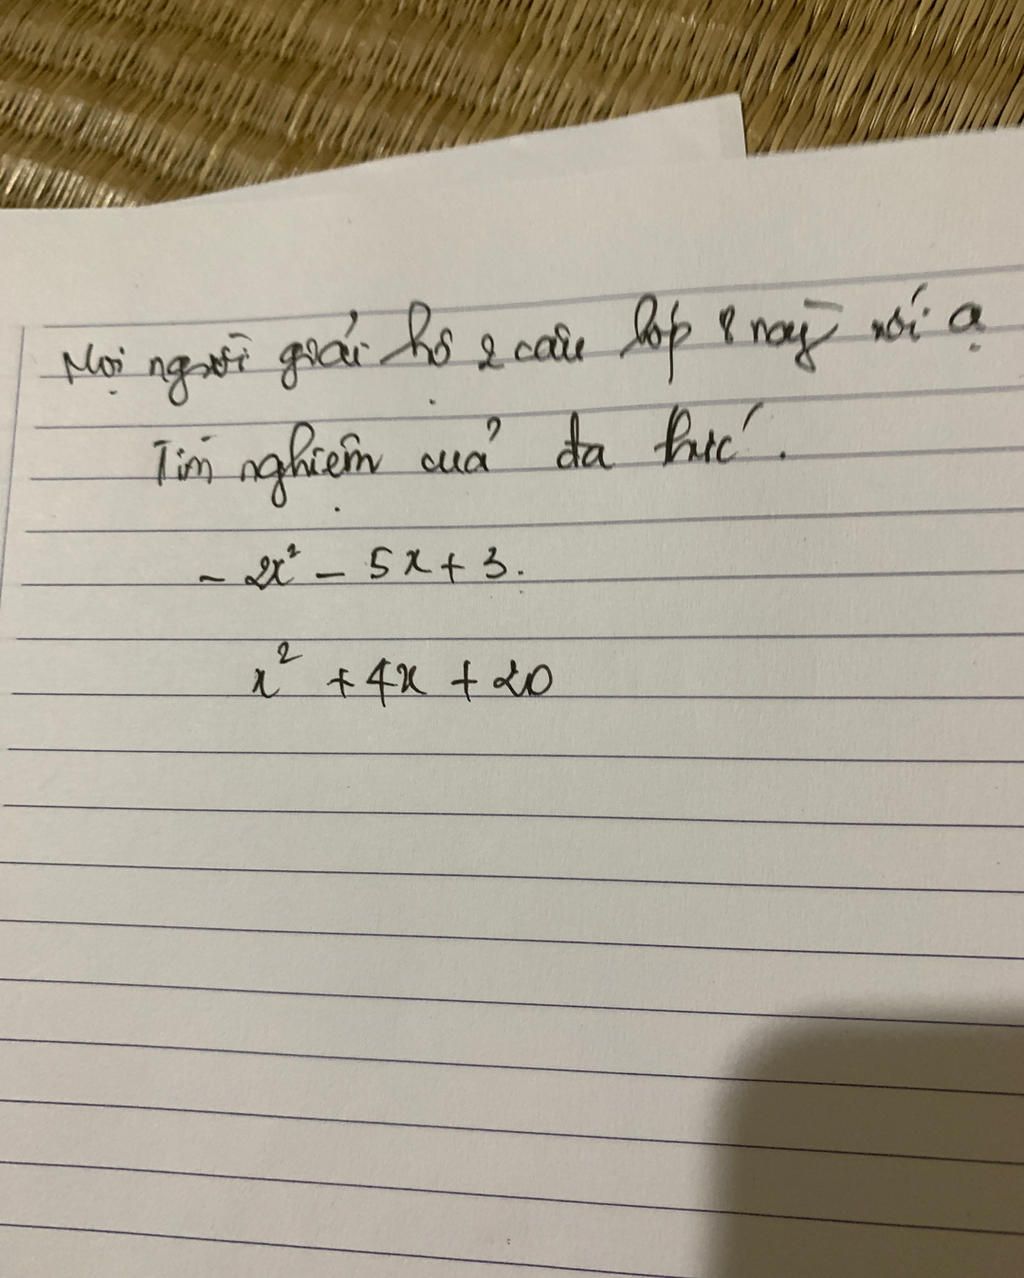 Mọi người giải hộ 2 câu lớp 8 này với ạ
Tìm nghiệm của đa thức.
- 2x² - 5x + 3.
x² + 4x + 20